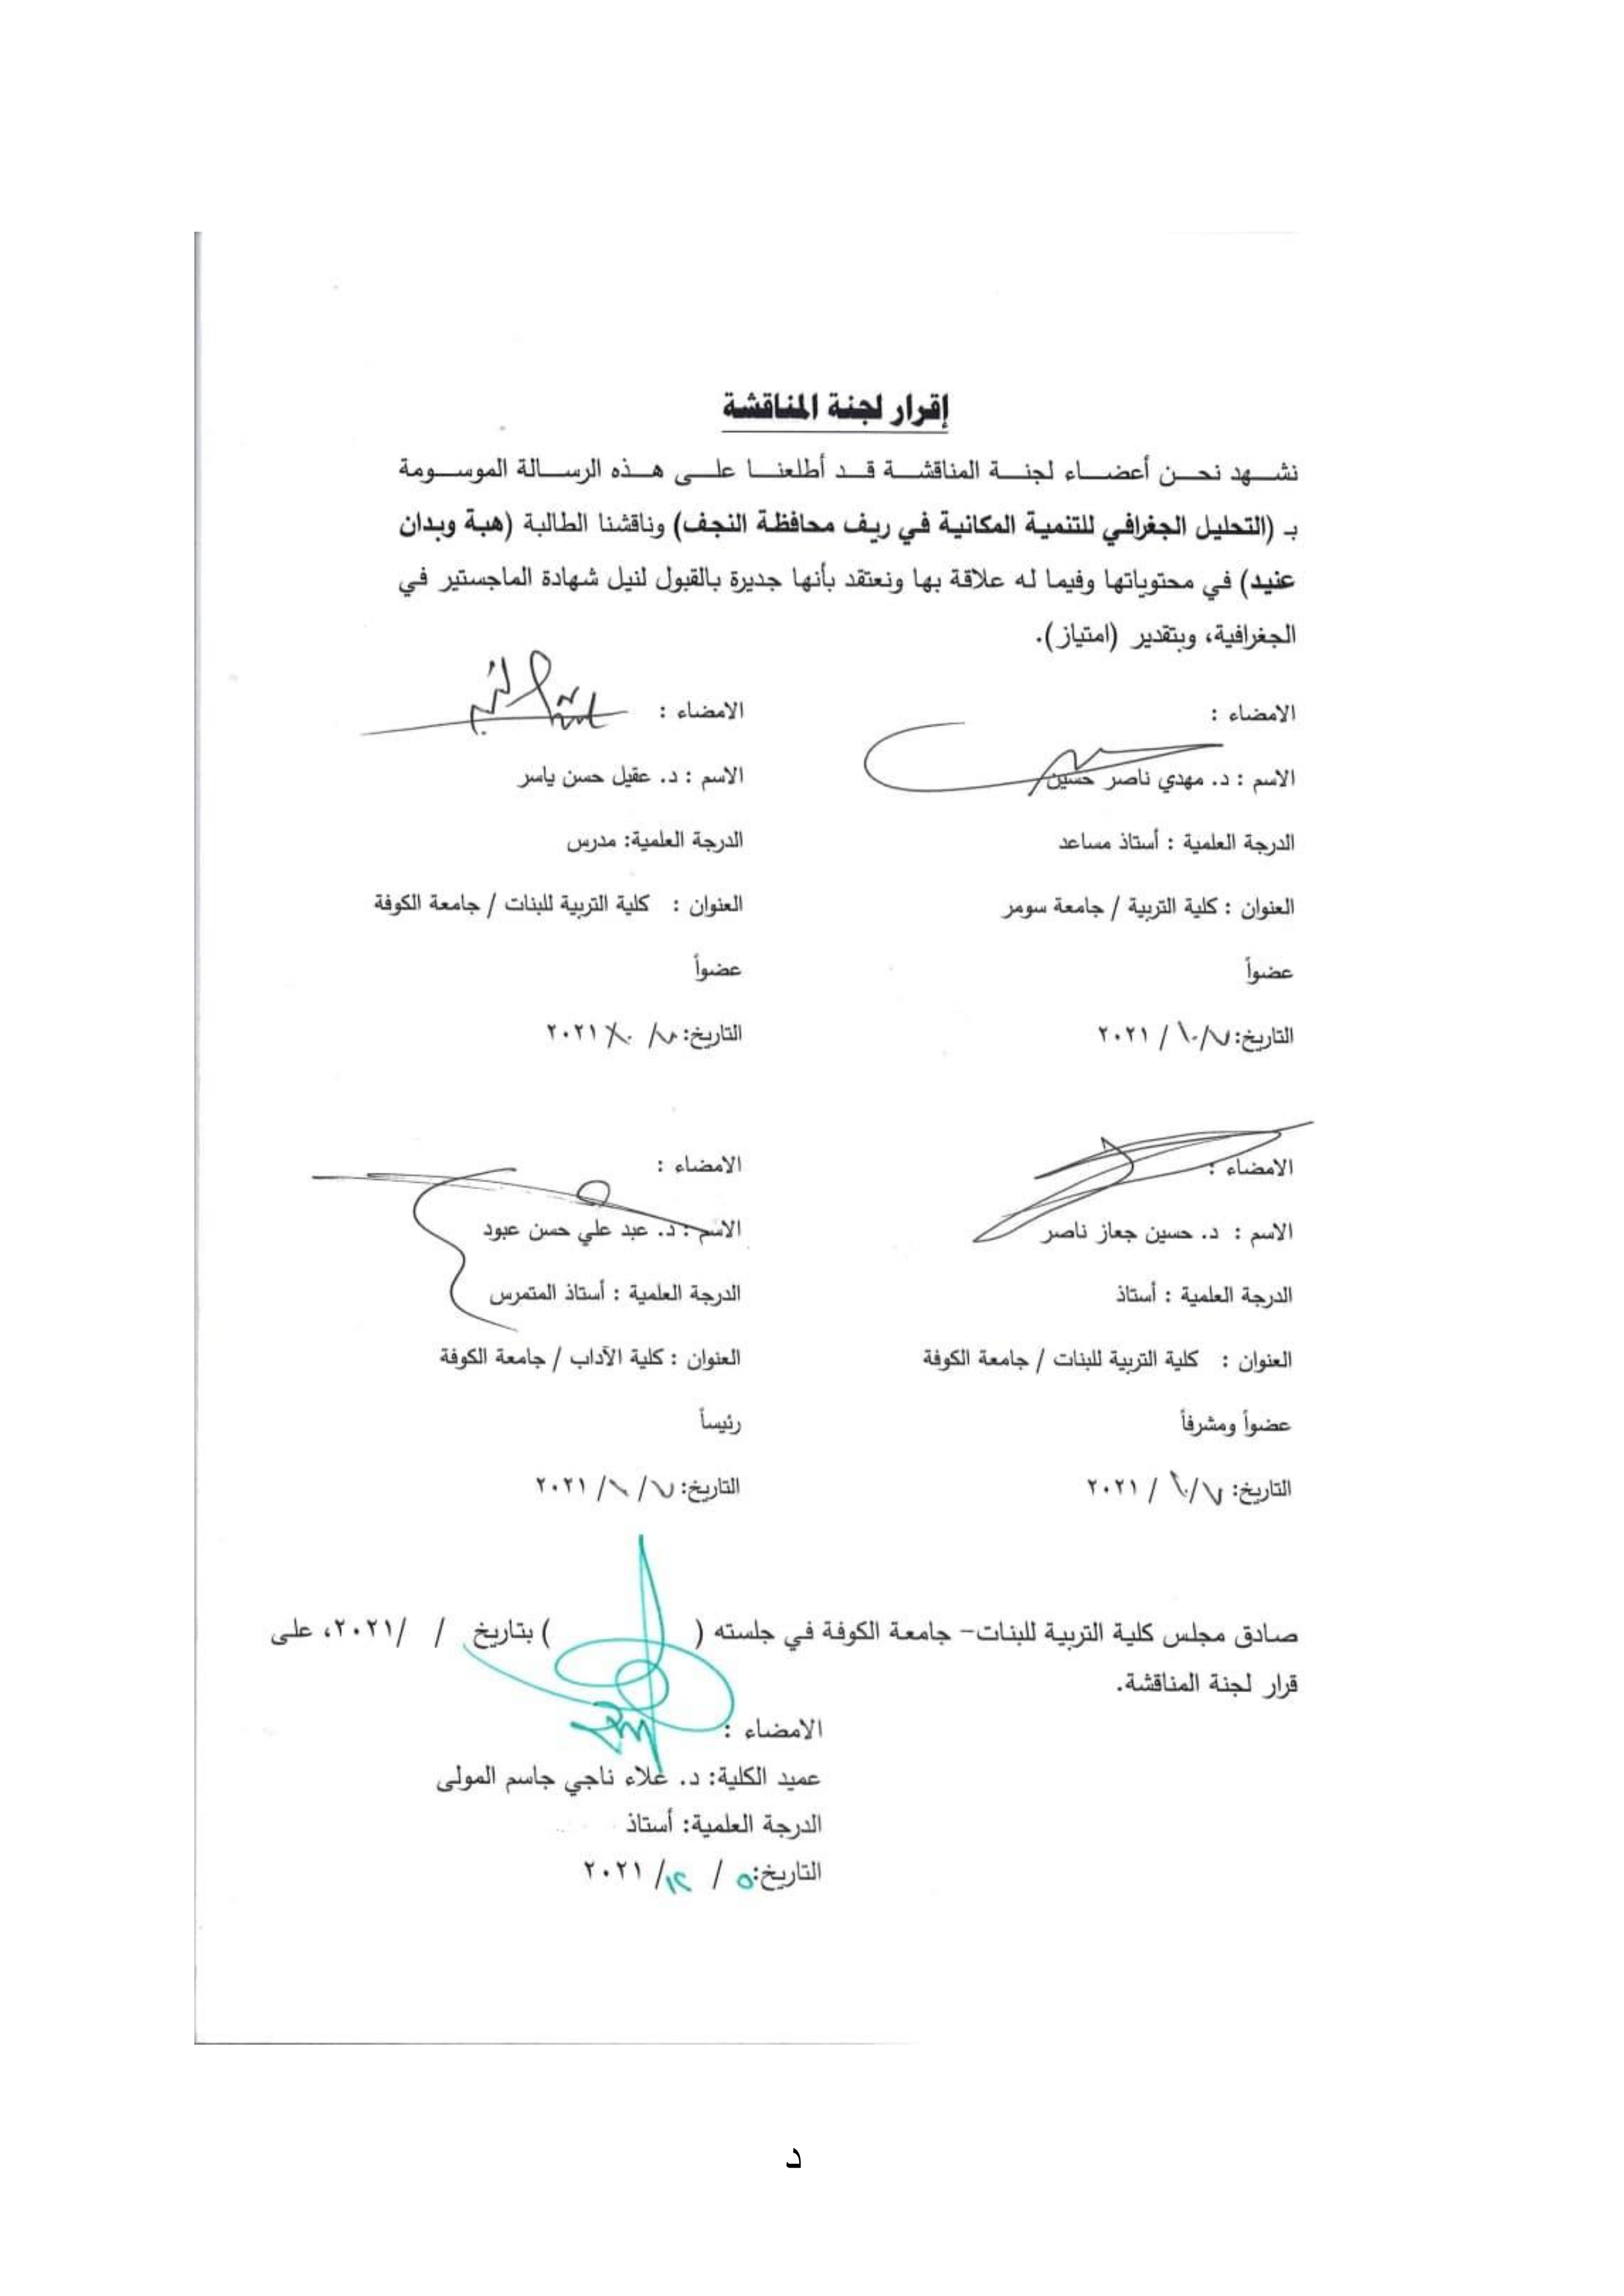 إقرار لجنة المناقشة
نشهد نحن أعضاء لجنة المناقشة قد أطلعنا على هذه الرسالة الموسومة
بـ (التحليل الجغرافي للتنمية المكانية في ريف محافظة النجف) وناقشنا الطالبة (هبة وبدان
عنيد) في محتوياتها وفيما له علاقة بها ونعتقد بأنها جديرة بالقبول لنيل شهادة الماجستير في
الجغرافية، وبتقدير (امتياز).
الامضاء :
الاسم : د. مهدي ناصر حسين
الدرجة العلمية : أستاذ مساعد
العنوان : كلية التربية / جامعة سومر
عضواً
التاريخ: ٧/ ١٠/ ٢٠٢١
الامضاء :
الاسم : د. عقيل حسن ياسر
الدرجة العلمية: مدرس
العنوان : كلية التربية للبنات / جامعة الكوفة
عضواً
التاريخ: / ٢٠٢١
الامضاء :
الاسم : د. حسين جعاز ناصر
الدرجة العلمية : أستاذ
العنوان : كلية التربية للبنات / جامعة الكوفة
عضواً ومشرفاً
التاريخ: ٧/ ١٠/ ٢٠٢١
الامضاء :
الاسم : د. عبد علي حسن عبود
الدرجة العلمية : أستاذ المتمرس
العنوان : كلية الآداب / جامعة الكوفة
رئيساً
التاريخ: ٧/ / ٢٠٢١
صادق مجلس كلية التربية للبنات- جامعة الكوفة في جلسته ( ) بتاريخ / /٢٠٢١، على
قرار لجنة المناقشة.
الامضاء :
عميد الكلية: د. علاء ناجي جاسم المولى
الدرجة العلمية: أستاذ
التاريخ: ٥ / ١٢/ ٢٠٢١
د